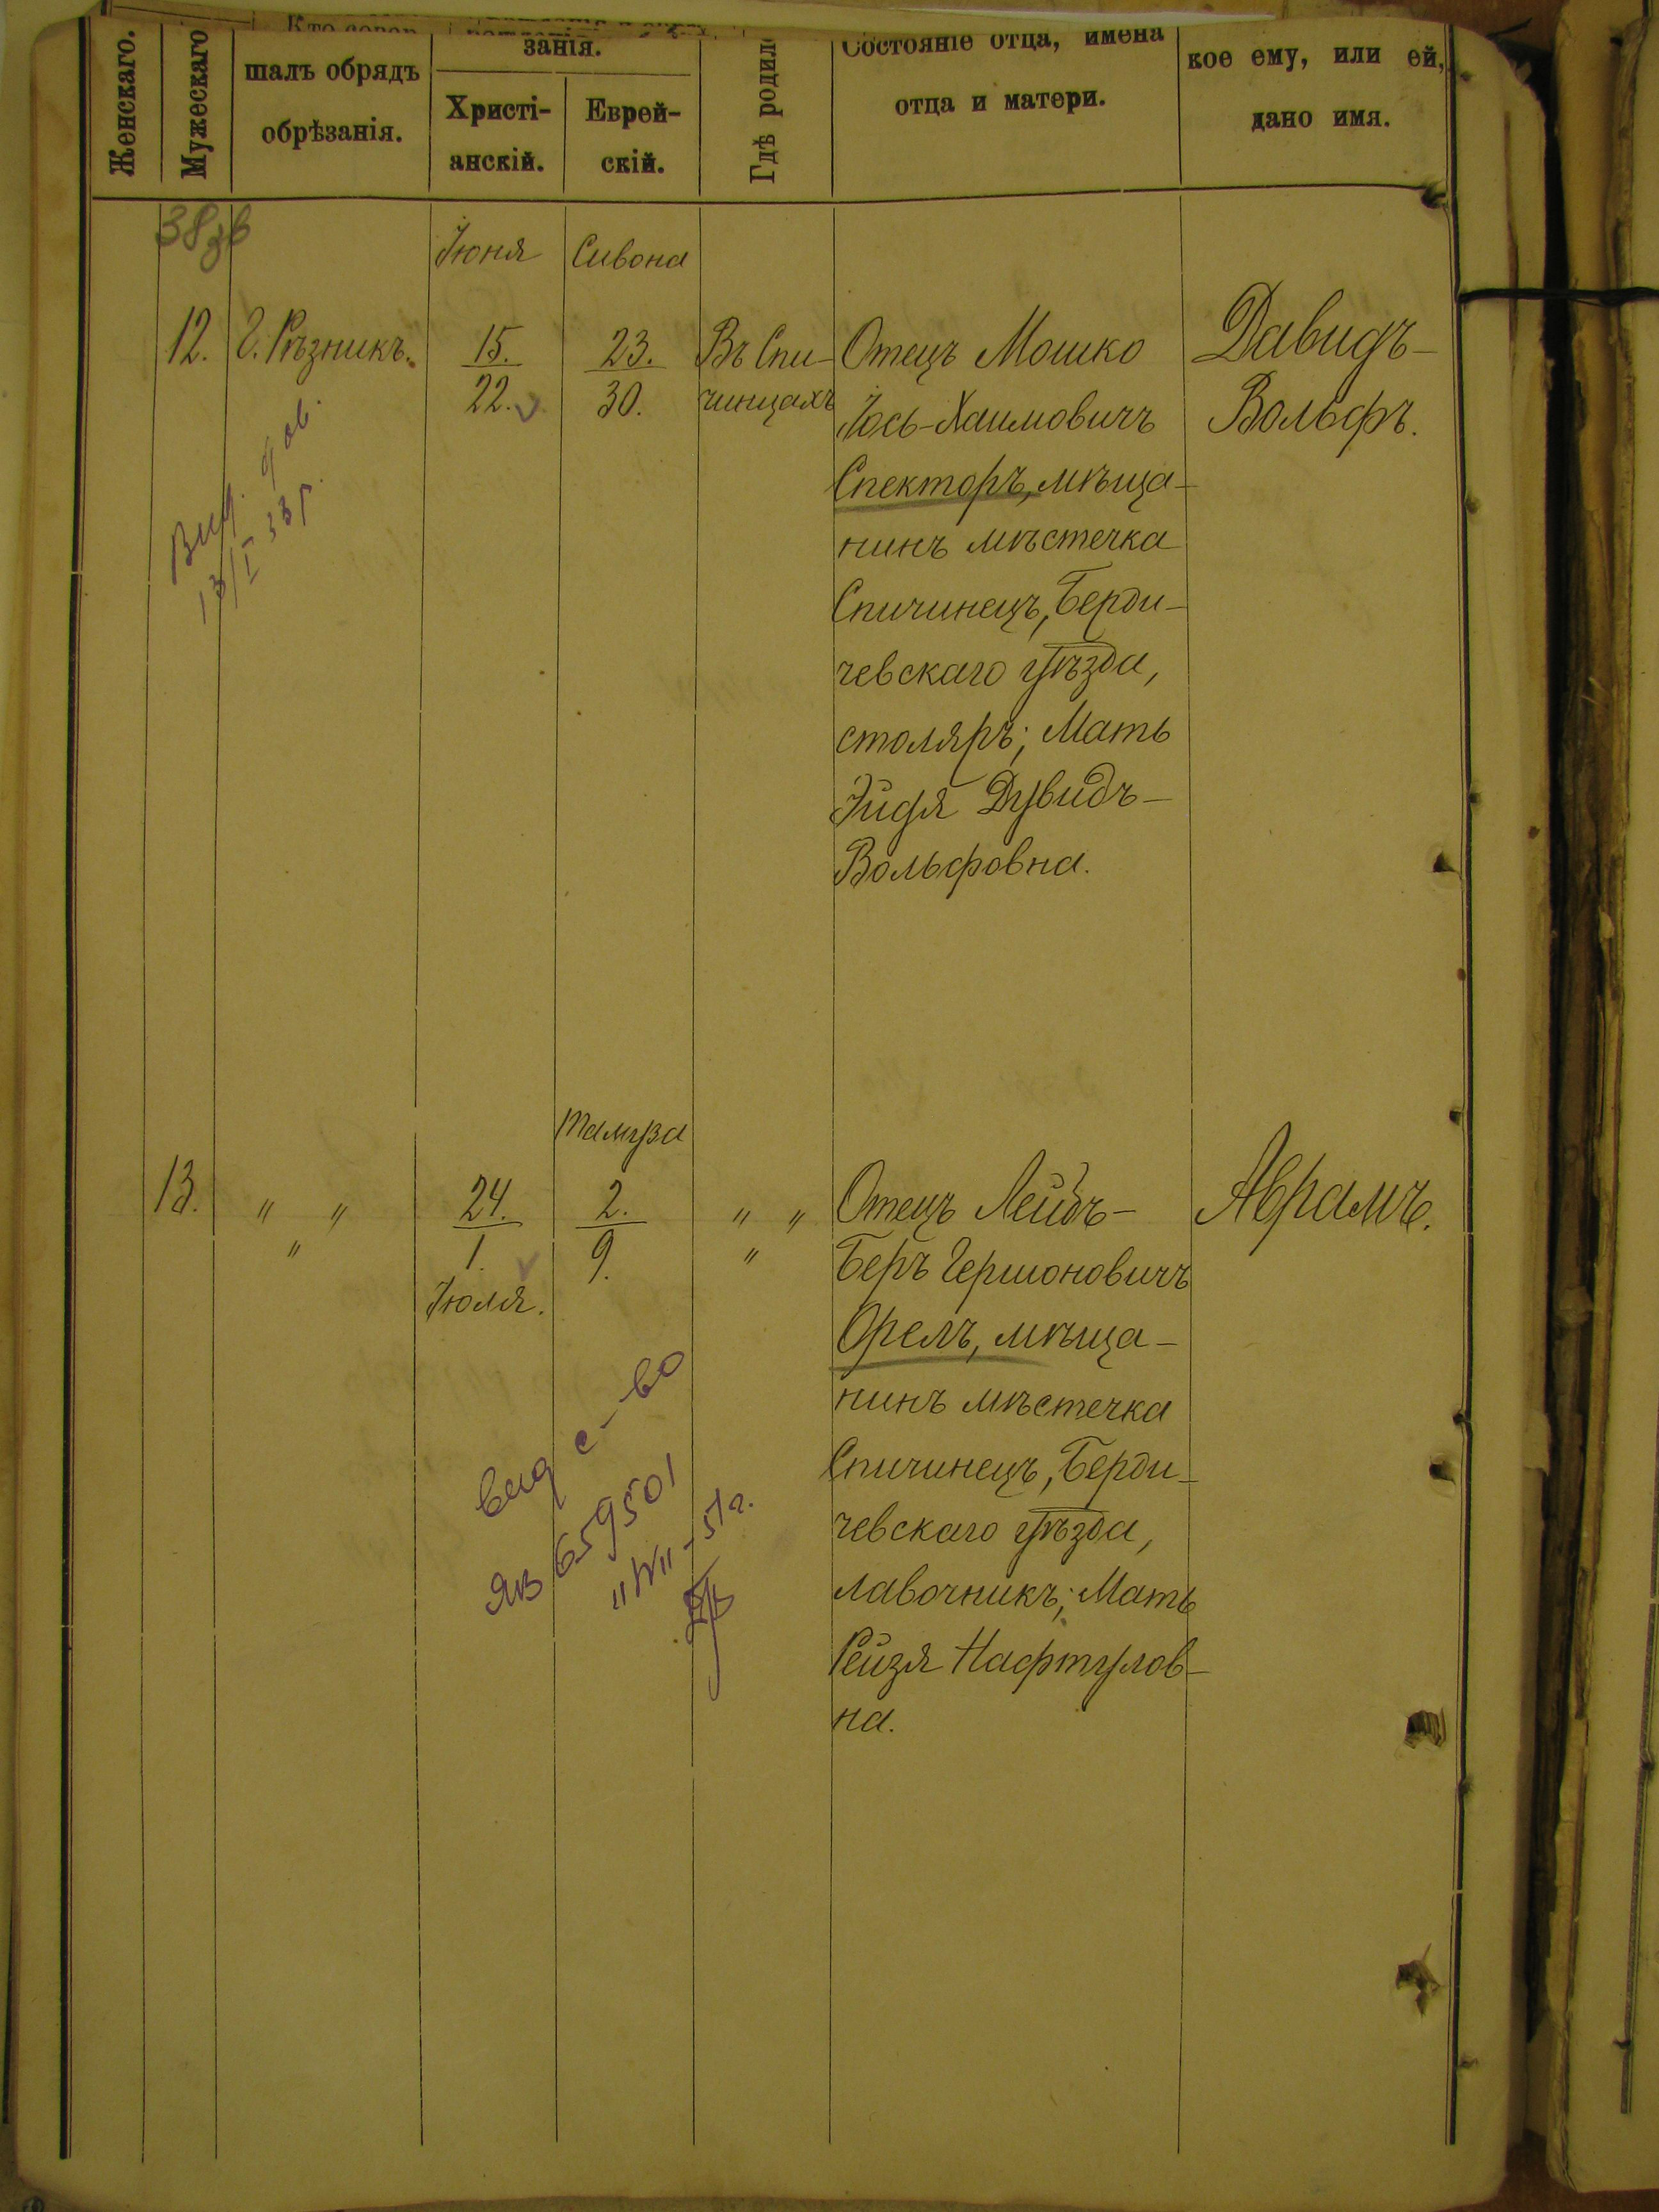 Женскаго.
Мужескаго
шалъ обрядъ
обрѣзанія.
занія.
Христі-
анскій.
Еврей-
скій.
Гдѣ родил
Состояніе отца, имена
отца и матери.
кое ему, или ей,
дано имя.
38зв
Іюня
Сивона
12.
Г. Рѣзникъ.
15.
22.
23.
30.
Въ Спи-
чинцахъ
Отецъ Мошко
Іось-Хаимовичъ
Спекторъ, мѣща-
нинъ мѣстечка
Спичинецъ, Берди-
чевскаго уѣзда,
столяръ; Мать
Эйдя Дувидъ-
Вольфовна.
Давидъ-
Вольфъ.
Вид. дов.
13/I 33 р.
Тамуза
13.
" "
"
24.
1.
Іюля.
2.
9.
" "
"
Отецъ Лейбъ-
Беръ Гершоновичъ
Орелъ, мѣща-
нинъ мѣстечка
Спичинецъ, Берди-
чевскаго уѣзда,
лавочникъ; Мать
Рейзя Нафтулов-
на.
Аврамъ.
выд с-во
659501
51г.